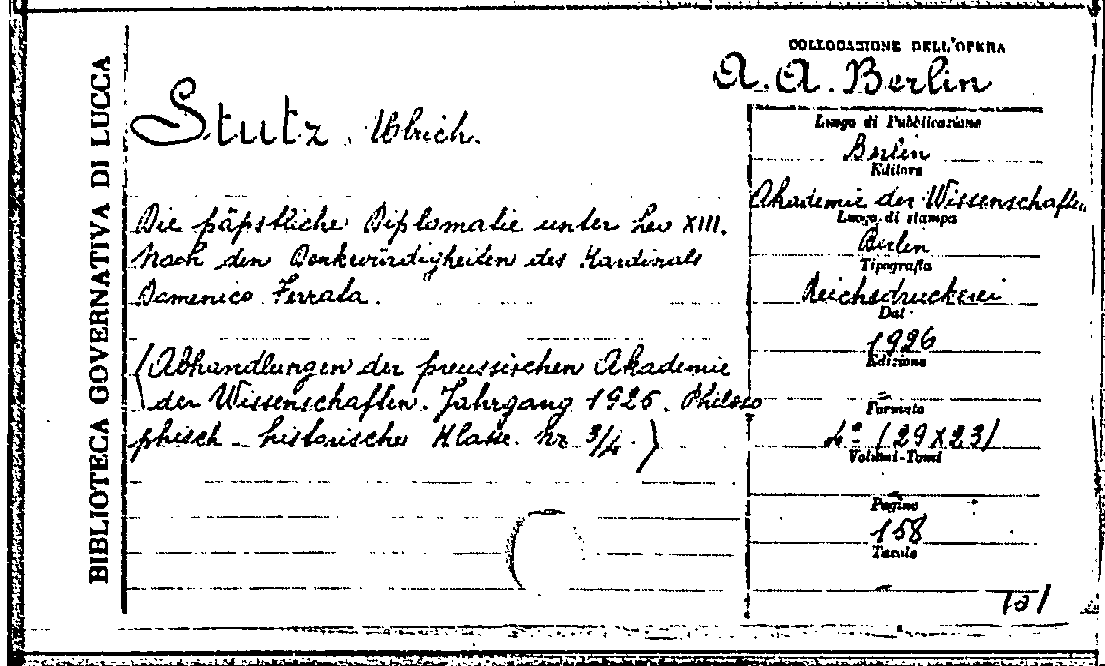 BIBLIOTECA GOVERNATIVA DI LUCCA
COLLOCAZIONE DELL'OPERA
A. A. Berlin
Stutz, Ulrich.
Die päpstliche Diplomatie unter Leo XIII.
Nach den Denkwürdigkeiten des Kardinals
Domenico Ferrata.
(Abhandlungen der preussischen Akademie
der Wissenschaften. Jahrgang 1925. Philoso
phisch - historische Klasse. Nr 3/4.)
Luogo di Pubblicazione
Berlin
Editore
Akademie der Wissenschaften
Luogo di stampa
Berlin
Tipografia
Reichsdruckerei
Dat
1926
Edizione
Formato
4° (29X23)
Volumi-Tomi
Pagine
158
Tavole